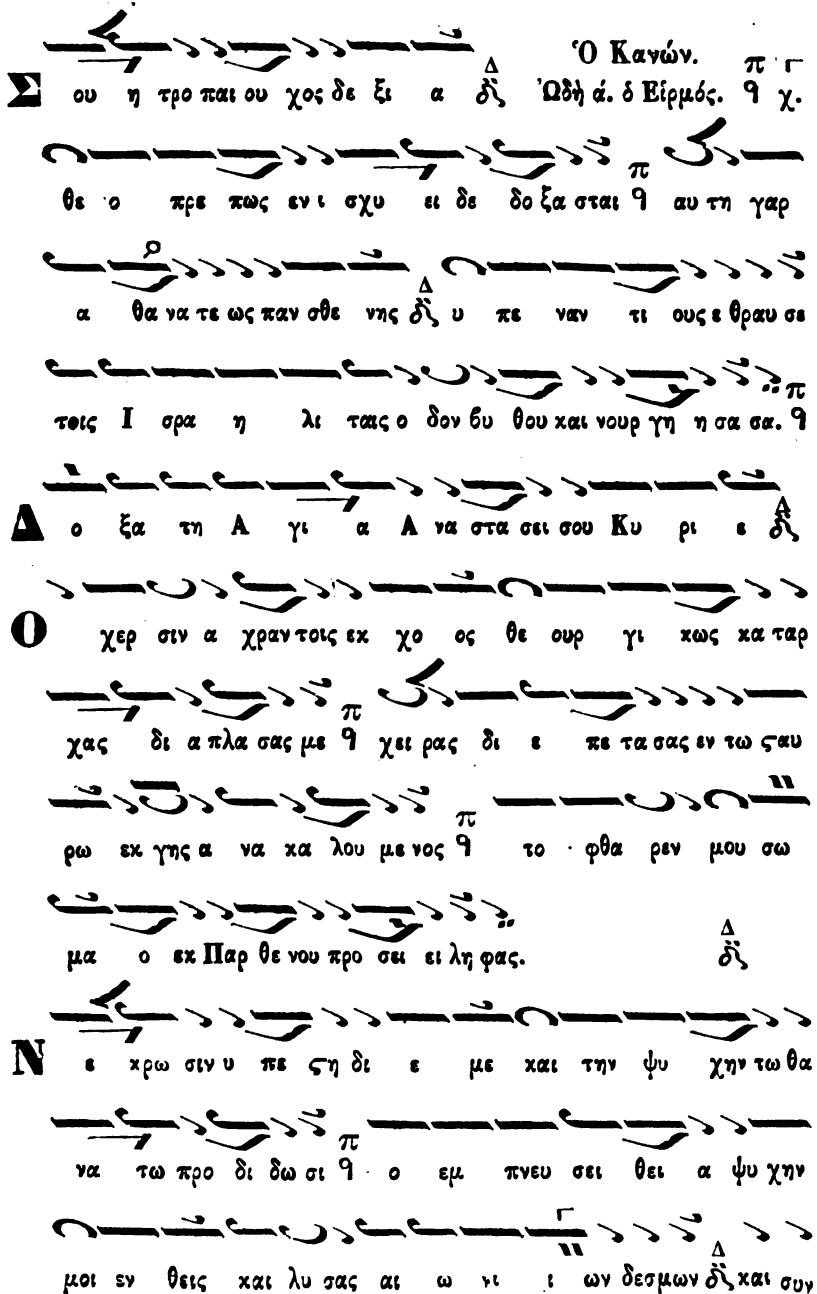 Ὁ Κανών.
Σ ου η τρο παι ου χος δε ξι α Ὠδὴ ά. ὁ Εἱρμός. χ.
θε ο πρε πως εν ι σχυ ει δε δο ξα σται αυ τη γαρ
α θα να τε ως παν σθε νης υ πε ναν τι ους ε θραυ σε
τοις Ι σρα η λι ταις ο δον βυ θου και νουρ γη η σα σα.
Δ ο ξα τη Α γι α Α να στα σει σου Κυ ρι ε
Ο χερ σιν α χραν τοις εκ χο ος θε ουρ γι κως κα ταρ
χας δι α πλα σας με χει ρας δι ε πε τα σας εν τω ϛαυ
ρω εκ γης α να κα λου με νος το φθα ρεν μου σω
μα ο εκ Παρ θε νου προ σει ει λη φας.
Ν ε κρω σιν υ πε ϛη δι ε με και την ψυ χην τω θα
να τω προ δι δω σι ο εμ πνευ σει θει α ψυ χην
μοι εν θεις και λυ σας αι ω νι ι ων δεσμων και συν